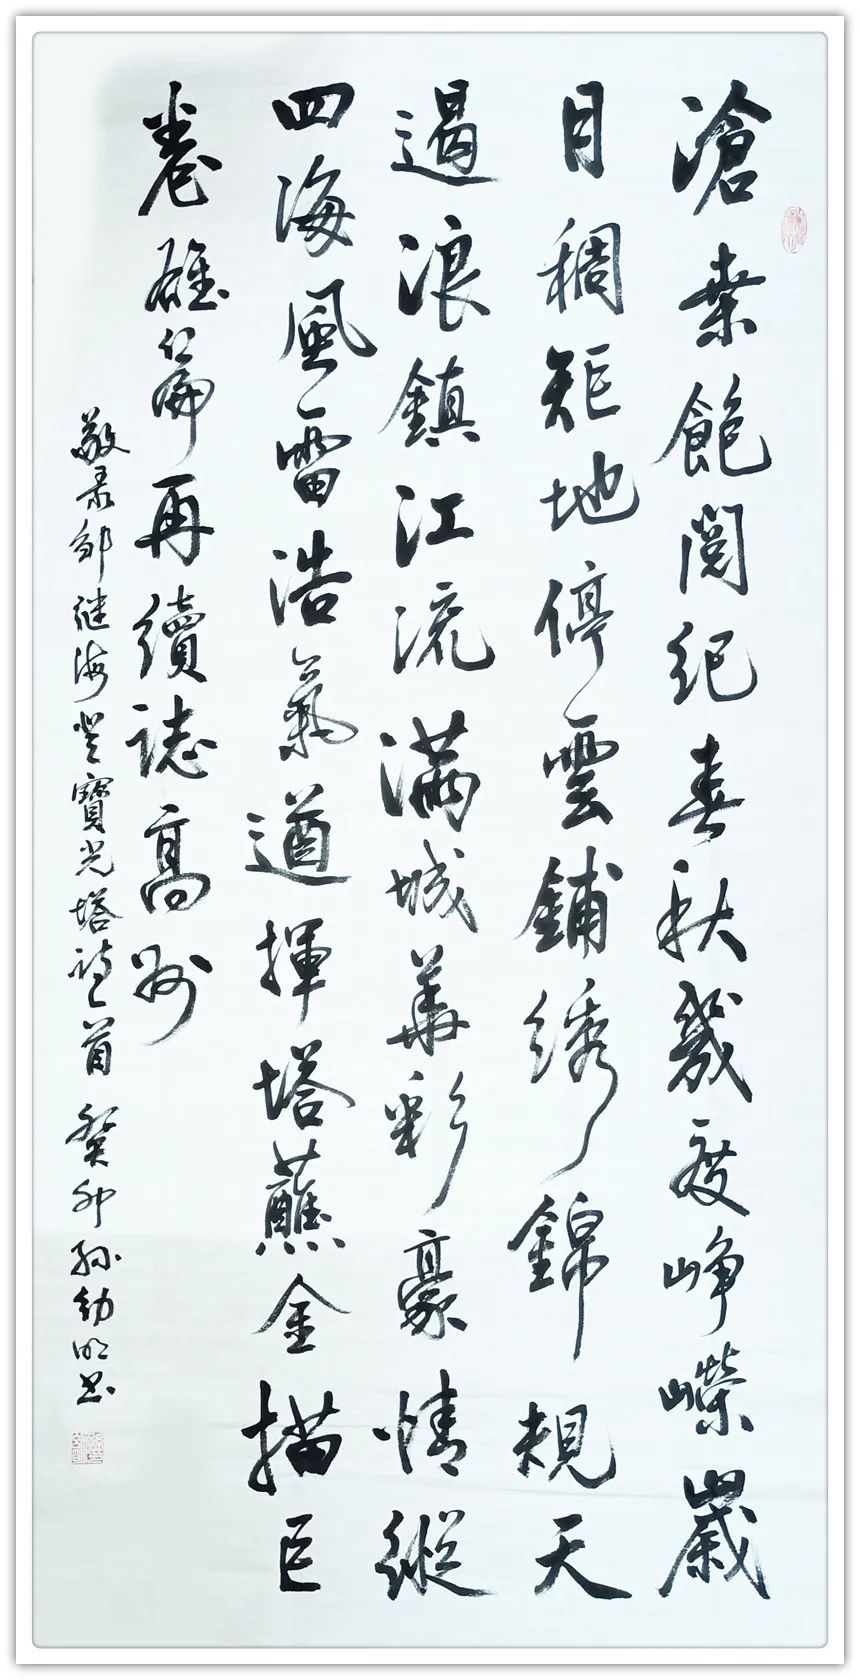 滄桑飽閱紀春秋幾度崢嶸歲
月稠矩地停雲鋪绣錦規天
遏浪鎮江流滿城華彩豪情縱
四海風雷浩氣遒揮塔蘸金描巨
卷雄篇再續誌高州
敬录邹继海登寶光塔诗一首 癸卯孙幼明书